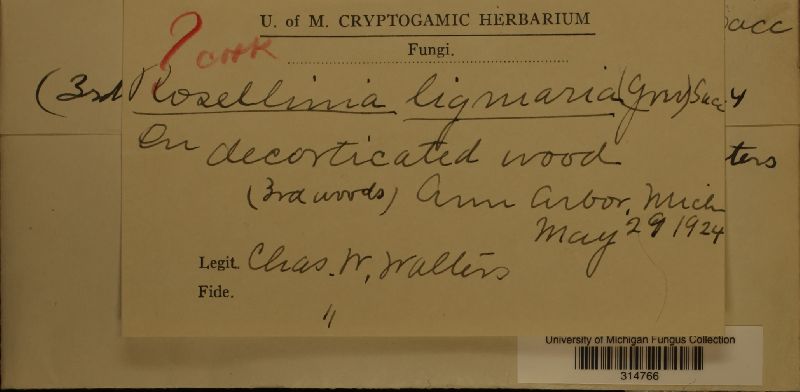 U. of M. CRYPTOGAMIC HERBARIUM
Fungi.
? CHK
(3rd Rosellinia ligniaria (Grev) Sacc
On decorticated wood
(3rd woods) Ann Arbor, Mich
May 29 1924
Legit. Chas. W. Walters
Fide. "
University of Michigan Fungus Collection
314766